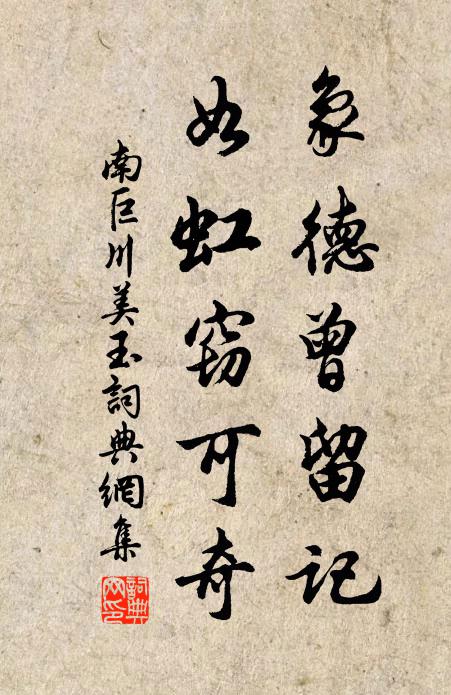 象德曾留記
如虹窃可奇
南巨川美玉詞典網集
詞典网印